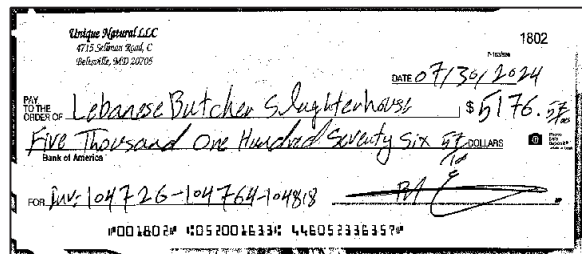 Unique Natural LLC
1802
4715 Sellman Road, C
Beltsville, MD 20705
DATE 07/30/2024
PAY TO THE ORDER OF Lebanese Butcher Slughterhouse $ 5176. 57/100
Five Thousand One Hundred Seventy Six 57/100 DOLLARS
Bank of America
FOR Inv: 104726-104764-104818
⑈001802⑈ ⑆052001633⑆ 446052336357⑈